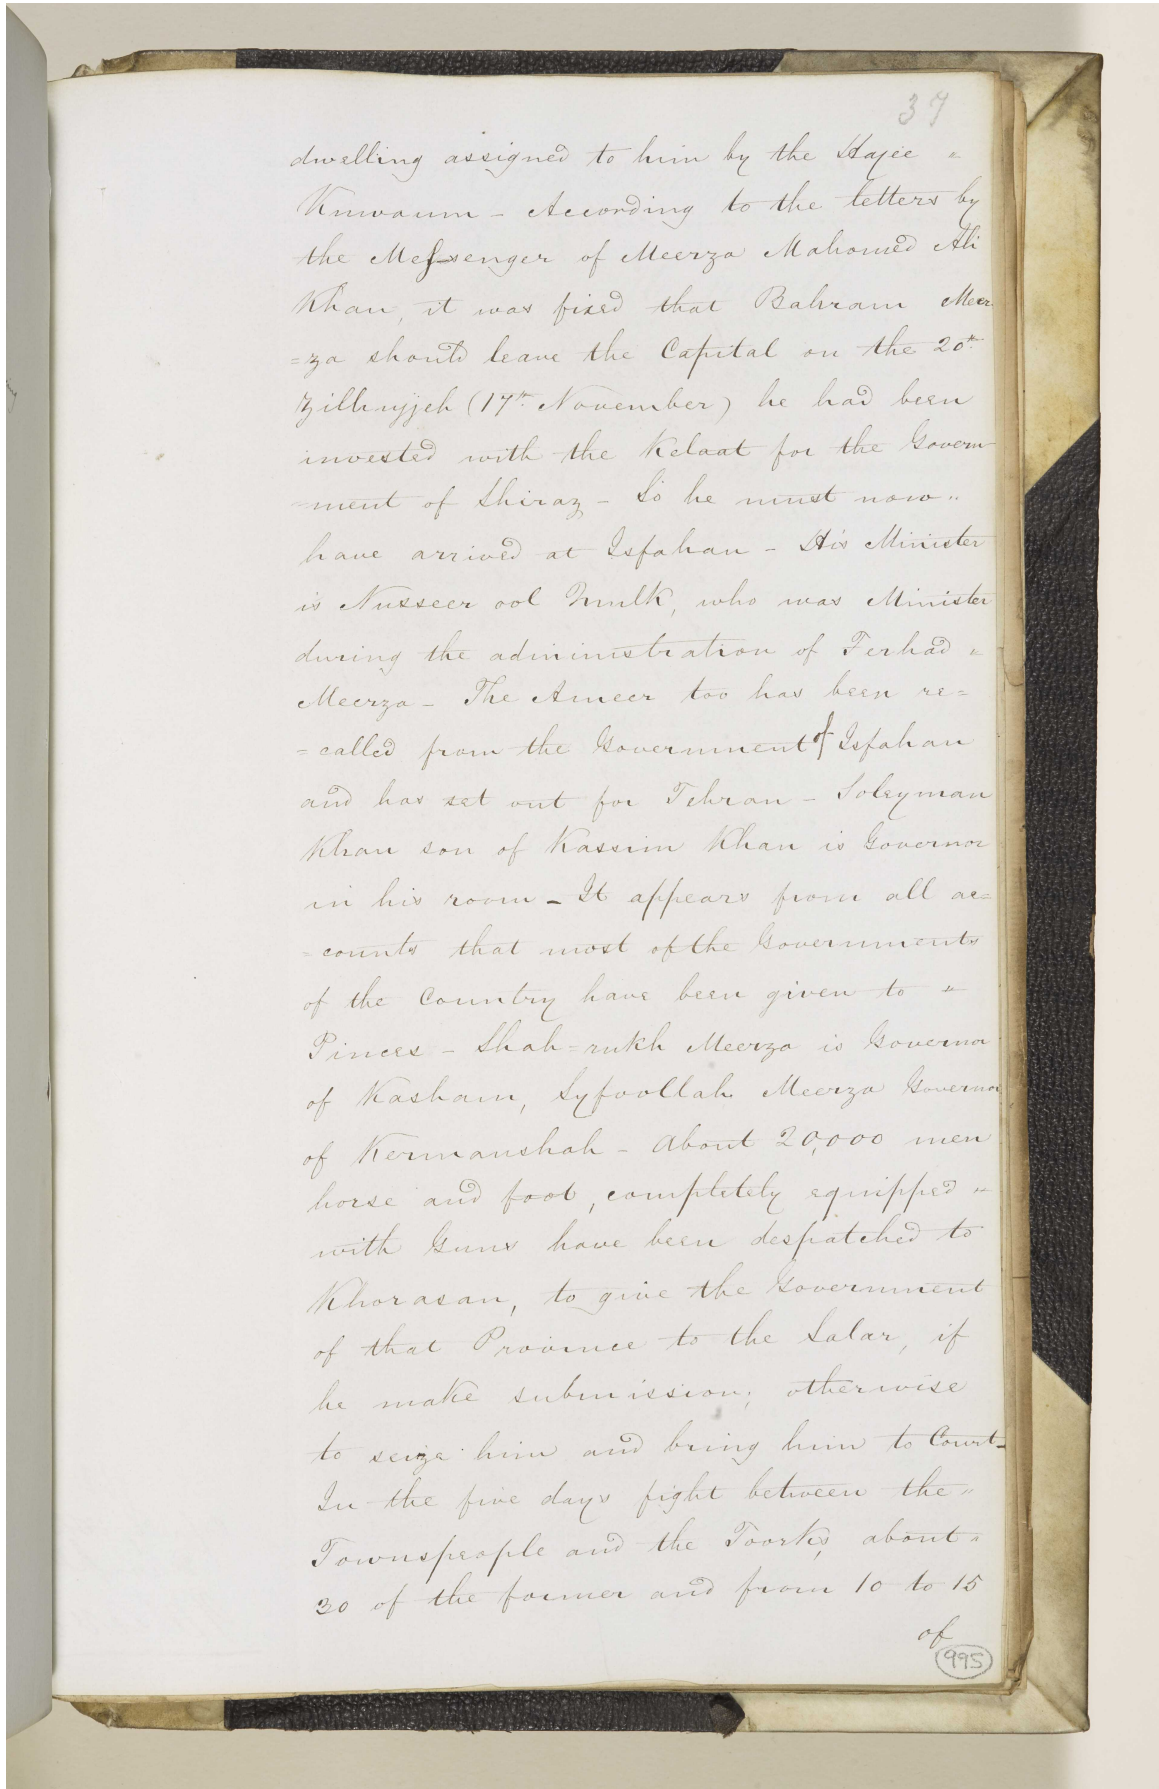 37
dwelling assigned to him by the Hajee "
Kuwaum - According to the letters by
the Messenger of Meerza Mahomed Ali
Khan, it was fixed that Bahram Meer
=za should leave the Capital on the 20th
Zilhujjeh (17th November) he had been
invested with the Kelaat for the Govern
=ment of Shiraz - So he must now "
have arrived at Isfahan - His Minister
is Nusseer ool Mulk, who was Minister
during the administration of Ferhad "
Meerza - The Ameer too has been re=
=called from the Government of Isfahan
and has set out for Tehran - Soleyman
Khan son of Kassim Khan is Governor
in his room - It appears from all ac=
=counts that most of the Governments
of the Country have been given to "
Pinces - Shah=rukh Meerza is Governor
of Kasham, Syfoollah Meerza Governor
of Kermanshah - About 20,000 men
horse and foot, completely equipped "
with Guns have been despatched to
Khorasan, to give the Government
of that Province to the Salar, if
he make submission; otherwise
to seize him and bring him to Court -
In the five days fight between the "
Townspeople and the Toorks, about "
30 of the former and from 10 to 15
of
995